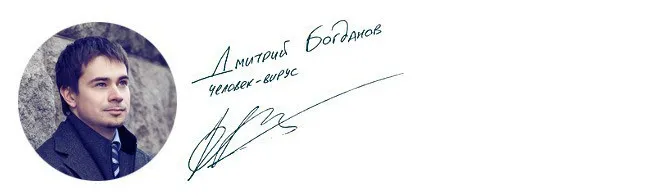 Дмитрий Богданов
человек-вирус